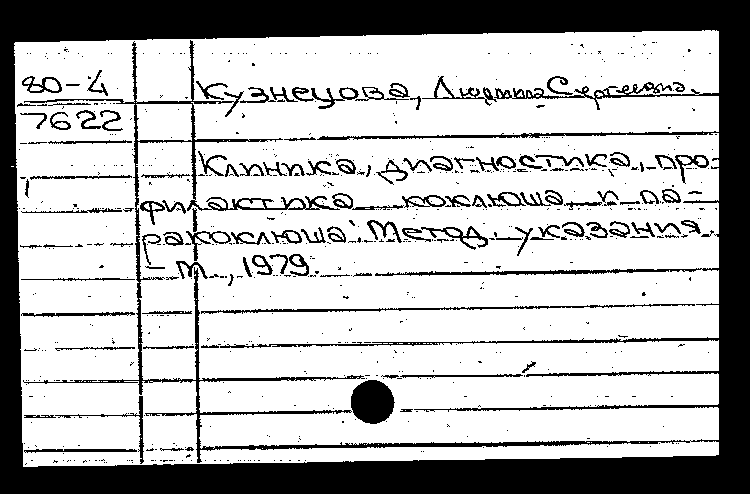 80-4
7622
Кузнецова, Людмила Сергеевна.
Клиника, диагностика, про-
филактика коклюша и па-
ракоклюша: Метод. указания.
- М., 1979.